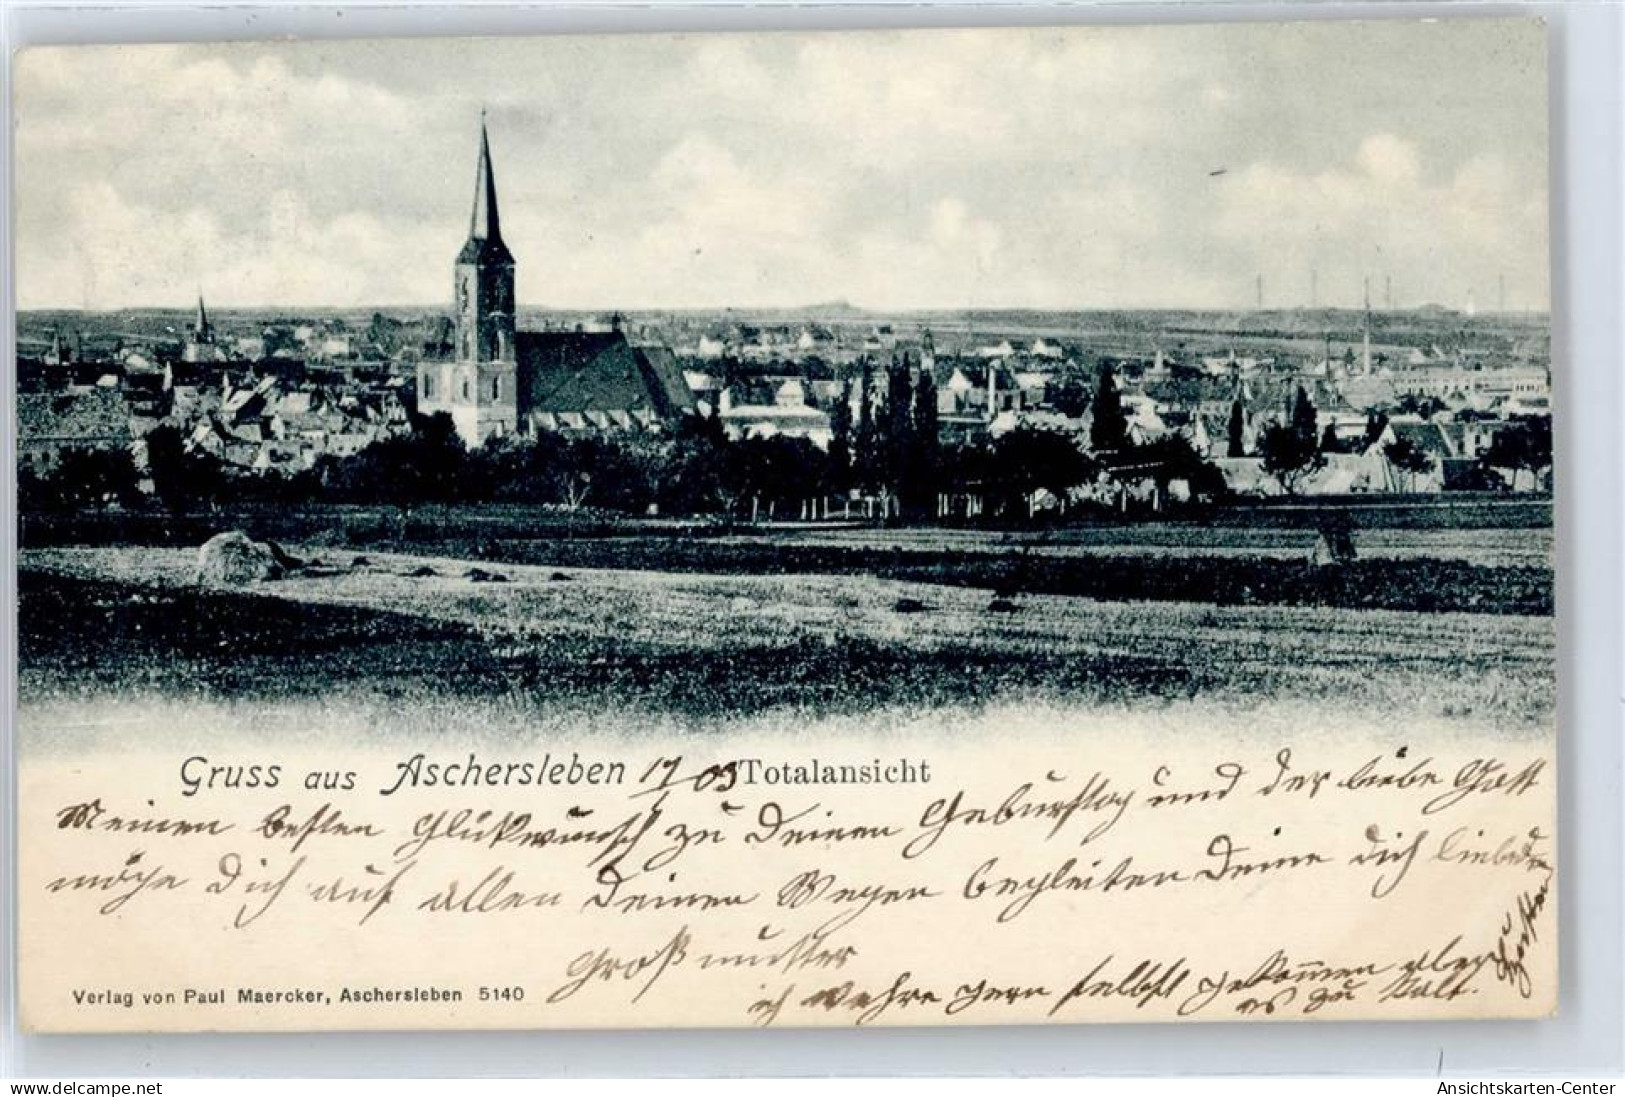 Gruss aus Aschersleben 17/ 03 Totalansicht
Meinen besten Glückwunsch zu Deinen Geburtstag und der liebe Gott
möge Dich auf allen Deinen Wegen begleiten Deine Dich liebende
Großmutter
ich wehre gern selbst gekommen aber
es zu kalt.
Verlag von Paul Maercker, Aschersleben 5140
delcampe.net
Ansichtskarten-Center